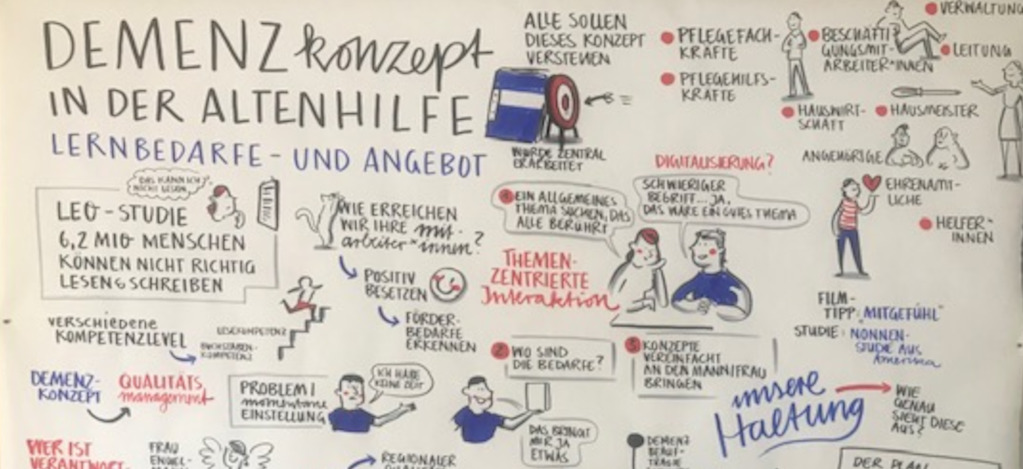 DEMENZ konzept
IN DER ALTENHILFE
LERNBEDARFE - UND ANGEBOT
ALLE SOLLEN
DIESES KONZEPT
VERSTEHEN
WURDE ZENTRAL
ERARBEITET
PFLEGEFACH-
KRÄFTE
PFLEGEHILFS-
KRÄFTE
BESCHÄFTI
GUNGSMIT-
ARBEITER*INNEN
VERWALTUNG
LEITUNG
HAUSWIRT-
SCHAFT
HAUSMEISTER
ANGEHÖRIGE
EHRENAMT-
LICHE
HELFER*
INNEN
DAS KANN ICH
NICHT LESEN
LEO - STUDIE
6,2 MIO MENSCHEN
KÖNNEN NICHT RICHTIG
LESEN & SCHREIBEN
WIE ERREICHEN
WIR IHRE mit-
arbeiter*innen?
POSITIV
BESETZEN
FÖRDER-
BEDARFE
ERKENNEN
VERSCHIEDENE
KOMPETENZLEVEL
LESEKOMPETENZ
BUCHSTABEN-
KOMPETENZ
DIGITALISIERUNG?
1 EIN ALLGEMEINES
THEMA SUCHEN, DAS
ALLE BERÜHRT
SCHWIERIGER
BEGRIFF... JA,
DAS WÄRE EIN GUTES THEMA
THEMEN-
ZENTRIERTE
Interaktion
2 WO SIND
DIE BEDARFE?
3 KONZEPTE
VEREINFACHT
AN DEN MANN/FRAU
BRINGEN
FILM-
TIPP: „MITGEFÜHL"
STUDIE: NONNEN-
STUDIE AUS
Amerika
DEMENZ-
KONZEPT
QUALITÄTS
management
PROBLEM!
momentane
EINSTELLUNG
ICH HABE
KEINE ZEIT
DAS BRINGT
MIR JA
ETWAS
unsere
Haltung
WIE
GENAU
SIEHT DIESE
AUS?
WER IST
VERANTWORT-
FRAU
ENGEL-
REGIONALER
DEMENZ
BEAUF-
TRAGTE
DER PLAN